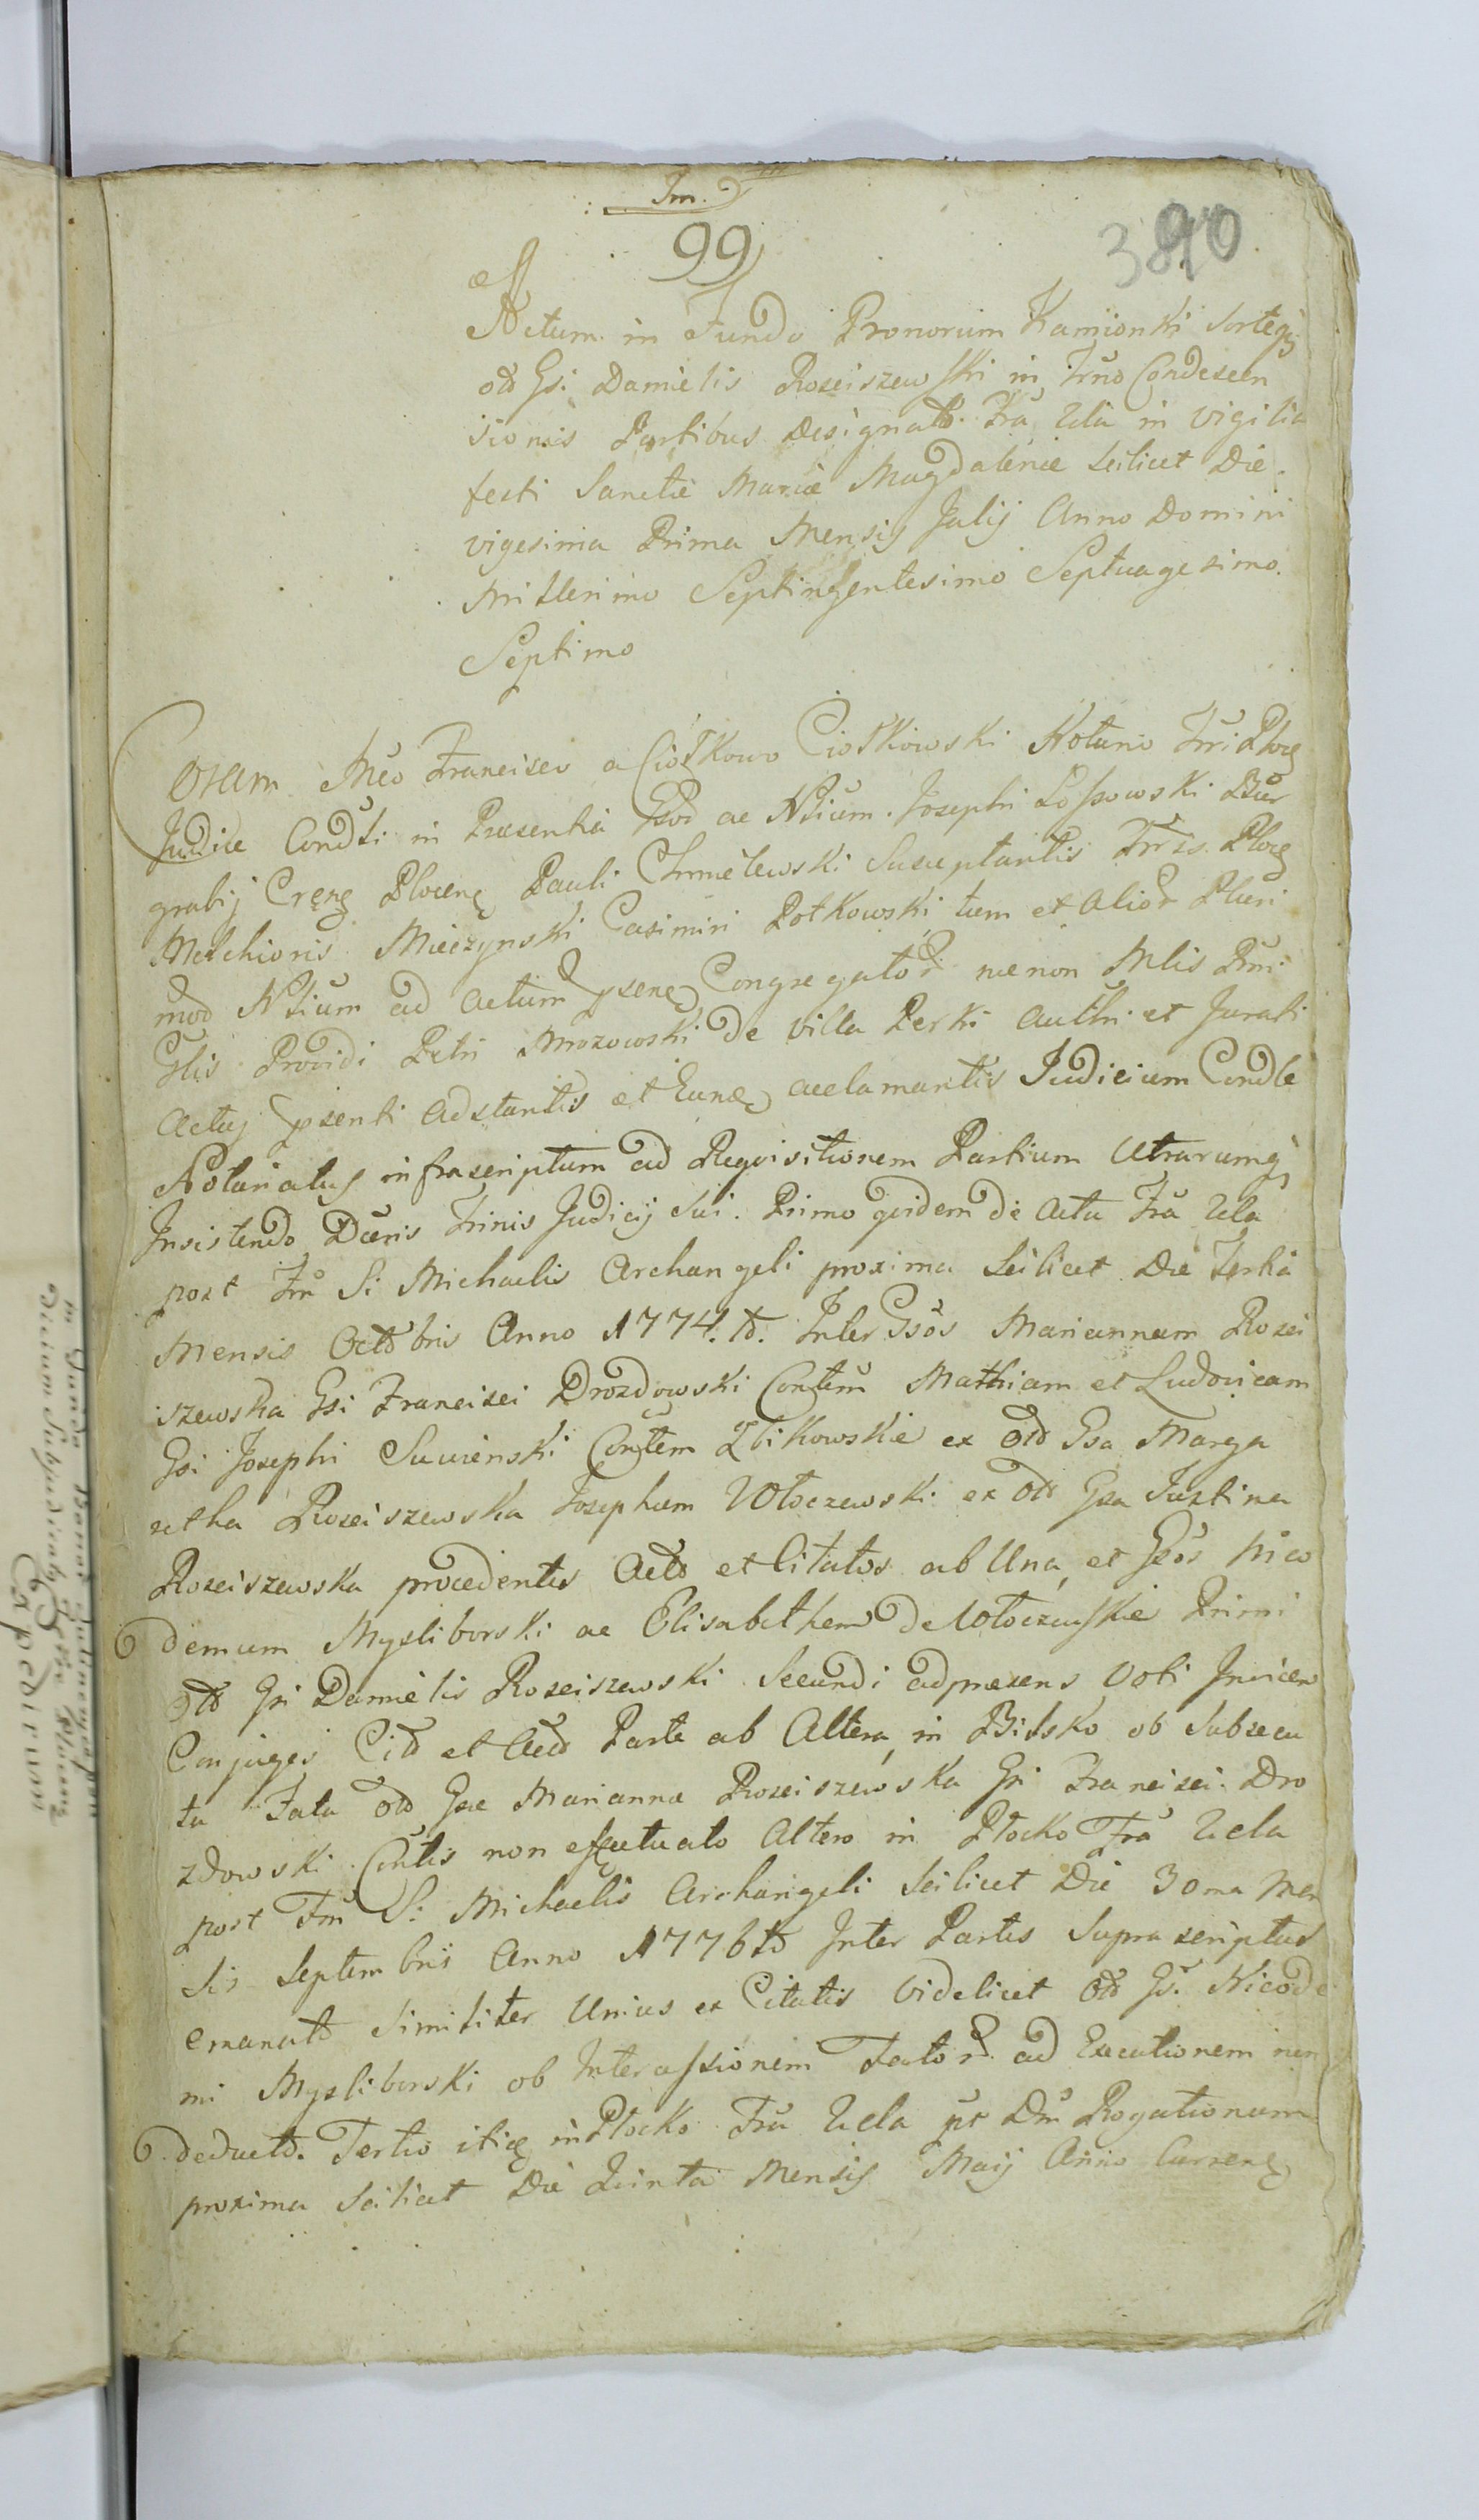 Im.
99
3890
Actum in Fundo Bonorum Kamionki Sortisq
olo Gsi Danielis Rosciszewski in Trno Condescen
sionis Partibus Designato. Fra 2da in vigilia
festi Sanctæ Mariæ Magdalenæ Scilicet Die
vigesima Prima Mensis Julij Anno Domini
Millesimo Septingentesimo Septuagesimo
Septimo
Coram Meo Francisco a Ciołkowo Ciołkowski Notario Trri Ploc
Judice Condsti in Præsentia Gsod ac Nlium Josephi Lossowski Bur
grabij Cren Plocen Pauli Chmielewski Susceptantis Trris Ploc
Melchioris Mieczynski Casimiri Potkowski tum et Alior Pluri
mod Nlium ad Actum Psene Congregator necnon Mlis Rni
Glis Providi Petri Mrozowski de Villa Perki Authi et Jurati
Actuj Psenti Adstantis et Eunde acclamantis Judicium Condle
Notariatus infrascriptum ad Reqvisitionem Partium Utrarumq
Insistendo Dæris Trinis Judicij Sui. Primo qvidem de Actu Fra 2da
post Fm S: Michaelis Archangeli proxima Scilicet Die Tertia
Mensis Octobris Anno 1774. to. Inter Gsos Mariannam Rosci
szewska Gsi Francisci Drozdowski Contem Mathiam et Ludovicam
Gsi Josephi Suwienski Contem Zbikowskie ex olo Gsa Marga
retha Rosciszewska Josephum Włoczewski ex olo Gsa Justina
Rosciszewska procedentes Acto et Citatos ab Una, et Gsos Nico
demum Mysliborski ac Elisabetham de Włoczewskie Primi
olo Gsi Danielis Rosciszewski Secundi adpræsens Voti Invicem
Conjuges Cito et Acto Parte ab Altera, in Bielsko ob Subsecu
ta Fata olo Gsæ Marianna Rosciszewska Gsi Francisci Dro
zdowski Contis non effectuato Altero in Płocko Fra 2da
post Fm S: Michaelis Archangeli Scilicet Die 30ma Men
sis Septembris Anno 1776 to Inter Partes Suprascriptas
emanato Similiter Unius ex Citatis Videlicet olo Gsi Nicode
mi Mysliborski ob Intercessionem Fator ad Executionem non
deducto. Tertio itiq in Płocko Fra 2da pt Dm Rogationum
proxima Scilicet Die Qvinta Mensis Maij Anno Curren